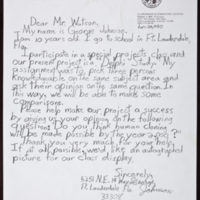 Dear Mr. Watson,
My name is George Johnson.
I am 10 years old. I go to school in Ft. Lauderdale,
Fla.
I participate in a special projects class and
our present project is a Delphi Study. My
assignment was to pick three persons
knowledgeable on the same subject area and
ask their opinions on the same question. In
this way, we will be able to make some
comparisons.
Please help make our project a success
by giving us your opinion on the following
question: Do you think human cloning
will be made possible by the year
Thank you very much for your help.
If at all possible, we'd like an autographed
picture for our class display.
Sincerely,
George
Johnson
5251 N.E.
Ft. Lauderdale Fla.